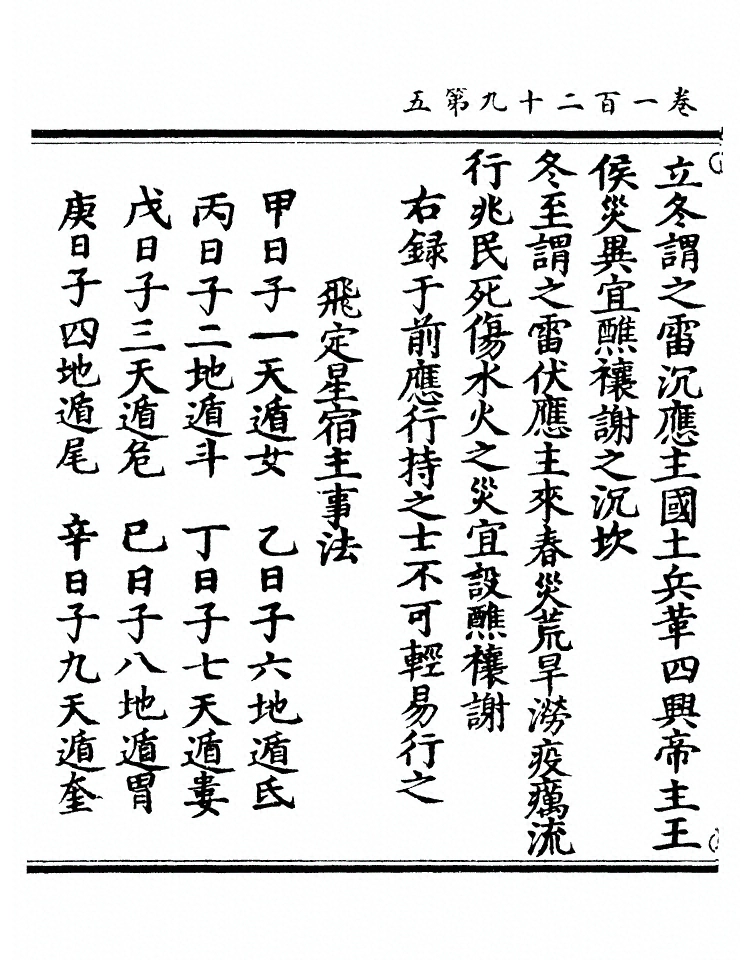 卷一百二十九第五
立冬謂之雷沉應主國土兵革四興帝主王
侯災異宜醮禳謝之沉坎
冬至謂之雷伏應主來春災荒旱澇疫癘流
行兆民死傷水火之災宜設醮禳謝
右録于前應行持之士不可輕易行之
飛定星宿主事法
甲日子一天遁女　乙日子六地遁氐
丙日子二地遁斗　丁日子七天遁婁
戊日子三天遁危　巳日子八地遁胃
庚日子四地遁尾　辛日子九天遁奎